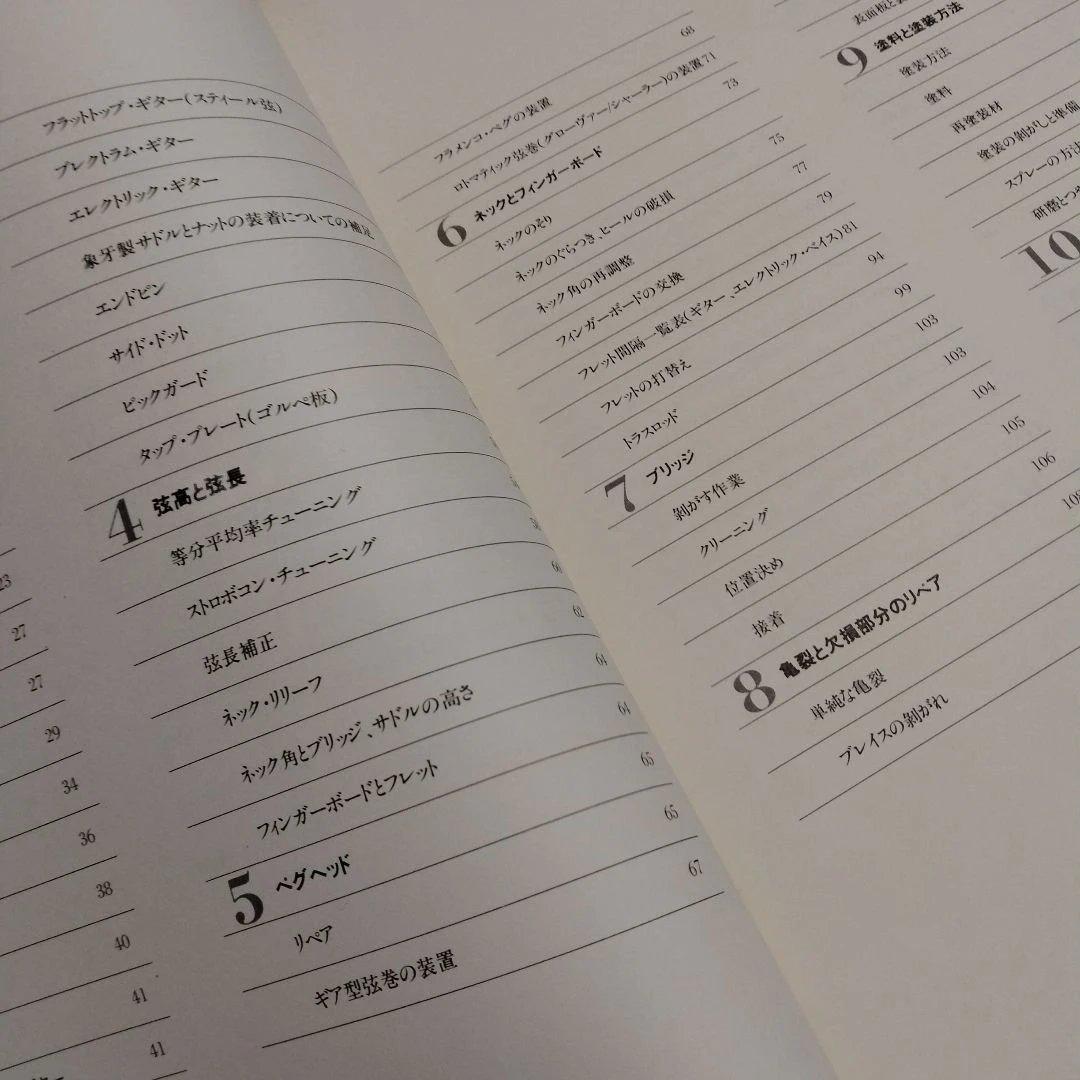 23
27
27
29
34
36
38
40
41
41
フラットトップ・ギター(スティール弦)
プレクトラム・ギター
エレクトリック・ギター
象牙製サドルとナットの装着についての補足
エンドピン
サイド・ドット
ピックガード
タップ・プレート(ゴルペ板)
4 弦高と弦長
等分平均率チューニング
ストロボコン・チューニング
弦長補正 60
ネック・リリーフ 62
ネック角とブリッジ、サドルの高さ 64
フィンガーボードとフレット 64
5 ペグヘッド 65
リペア 65
ギア型弦巻の装置 67
フラメンコ・ペグの装置 68
ロトマティック弦巻(グローヴァー/シャーラー)の装置 71
6 ネックとフィンガーボード 73
ネックのそり
ネックのぐらつき、ヒールの破損 75
ネック角の再調整 77
フィンガーボードの交換 79
フレット間隔一覧表(ギター、エレクトリック・ベイス) 81
フレットの打替え 94
トラスロッド 99
7 ブリッジ 103
剥がす作業 103
クリーニング 104
位置決め 105
接着 106
8 亀裂と欠損部分のリペア
単純な亀裂
ブレイスの剥がれ
表面板と
9 塗料と塗装方法
塗装方法
塗料
再塗装材
塗装の剥がしと準備
スプレーの方法
研磨とつや
10